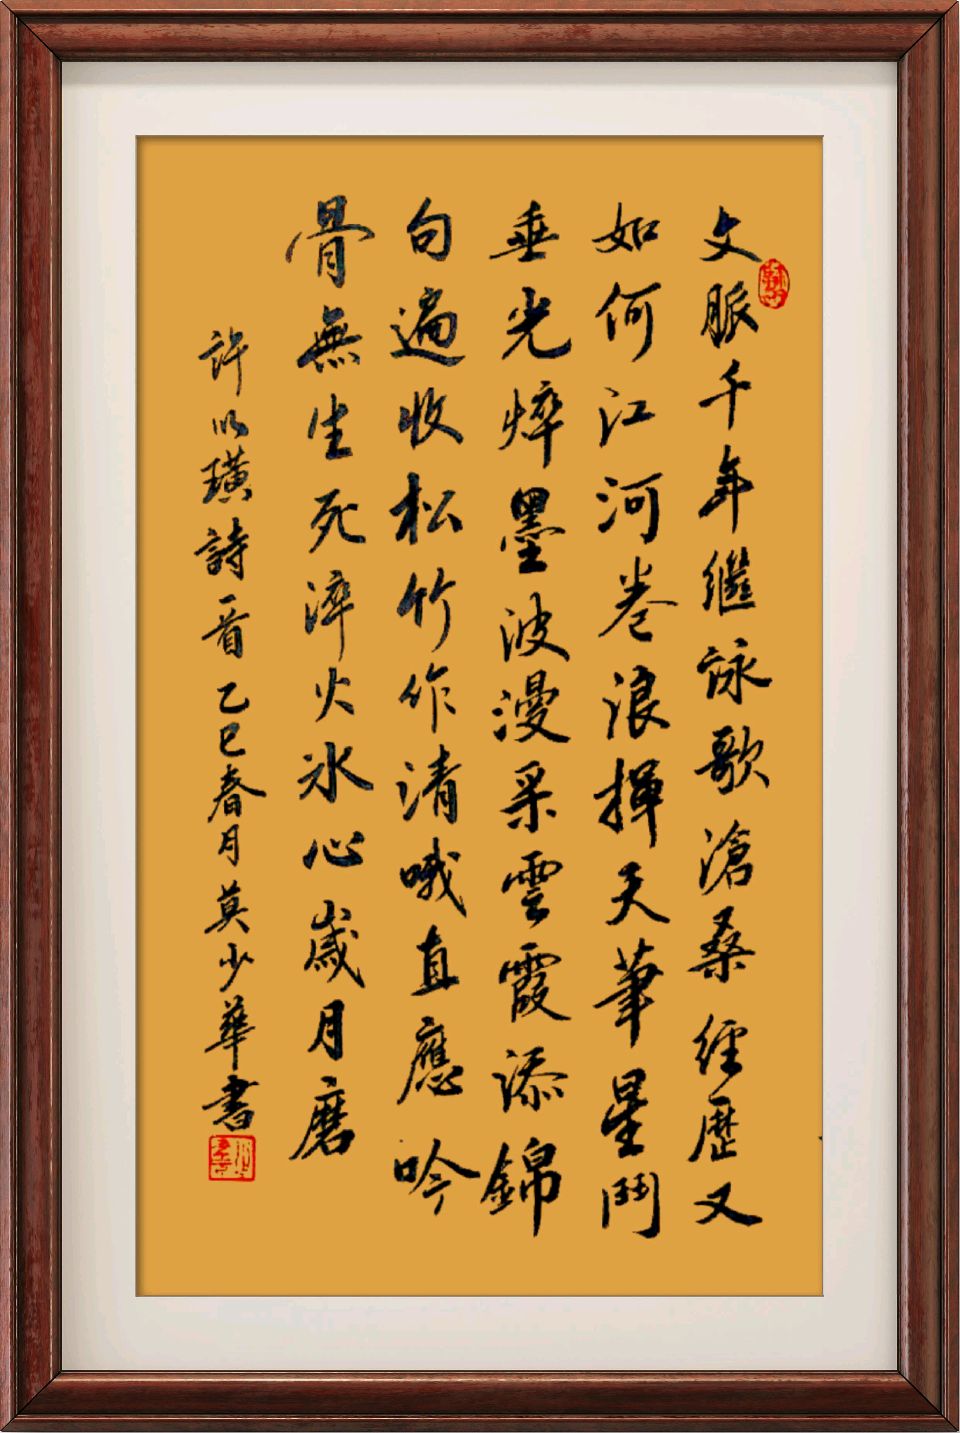 文脈千年繼詠歌滄桑經歷又
如何江河卷浪揮天筆星鬥
垂光焠墨波漫采雲霞添錦
句遍收松竹作清哦直應吟
骨無生死淬火冰心歲月磨
許以璜詩一首乙巳春月莫少華書